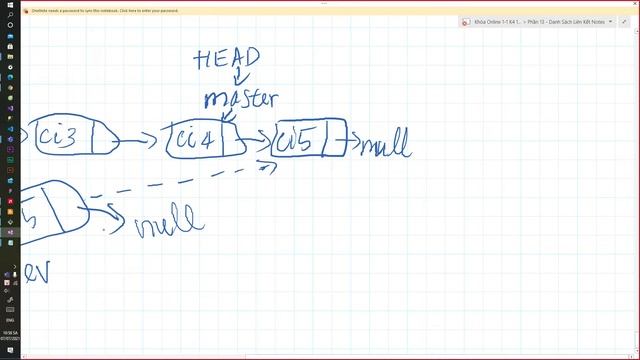 OneNote needs a password to sync this notebook. Click here to enter your password.
Khóa Online 1-1 K4 1... > Phần 13 - Danh Sách Liên Kết Notes
HEAD
master
ci3
ci4
ci5
null
5
null
ev
10:58 SA
07/07/2021